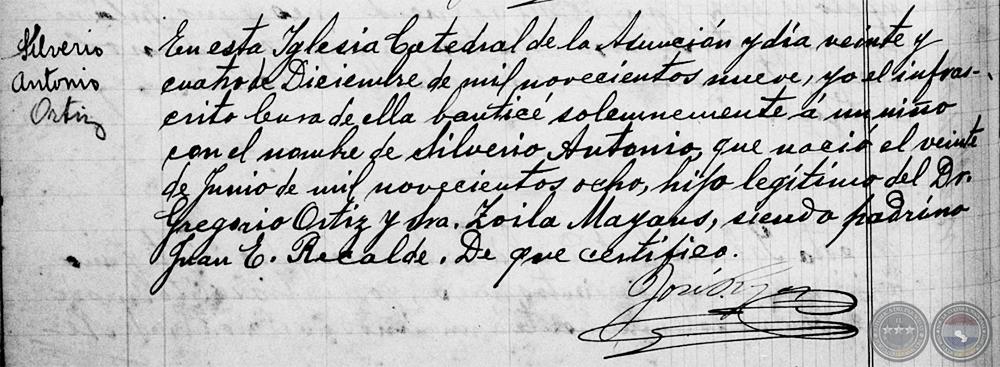 Silverio
Antonio
Ortiz
En esta Iglesia Catedral de la Asunción y día veinte y
cuatro de Diciembre de mil novecientos nueve, yo el infras-
crito Cura de ella bauticé solemnemente á un niño
con el nombre de Silverio Antonio, que nació el veinte
de Junio de mil novecientos ocho, hijo legítimo del Dr.
Gregorio Ortiz y Sra. Zoila Mayans, siendo padrino
Juan E. Recalde. De que certifico.
José